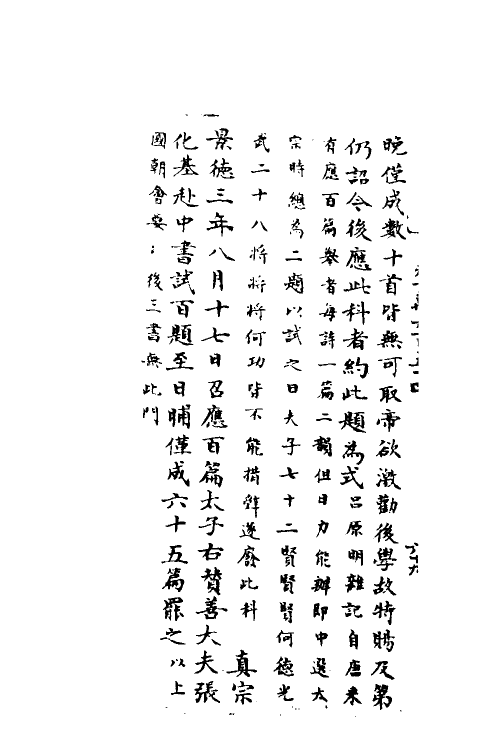 晚僅成數十首皆無可取帝欲激勸後學故特賜及第
仍詔今後應此科者約此題為式呂原明雜記自唐來
有應百篇舉者每詩一篇二韻但日力能辦即中選太
宗時總為二題以試之曰夫子七十二賢賢賢何德光
武二十八將將將何功皆不能措辭遂廢此科 真宗
景德三年八月十七日召應百篇太子右贊善大夫張
化基赴中書試百題至日晡僅成六十五篇罷之以上
國朝會要:後三書無此門